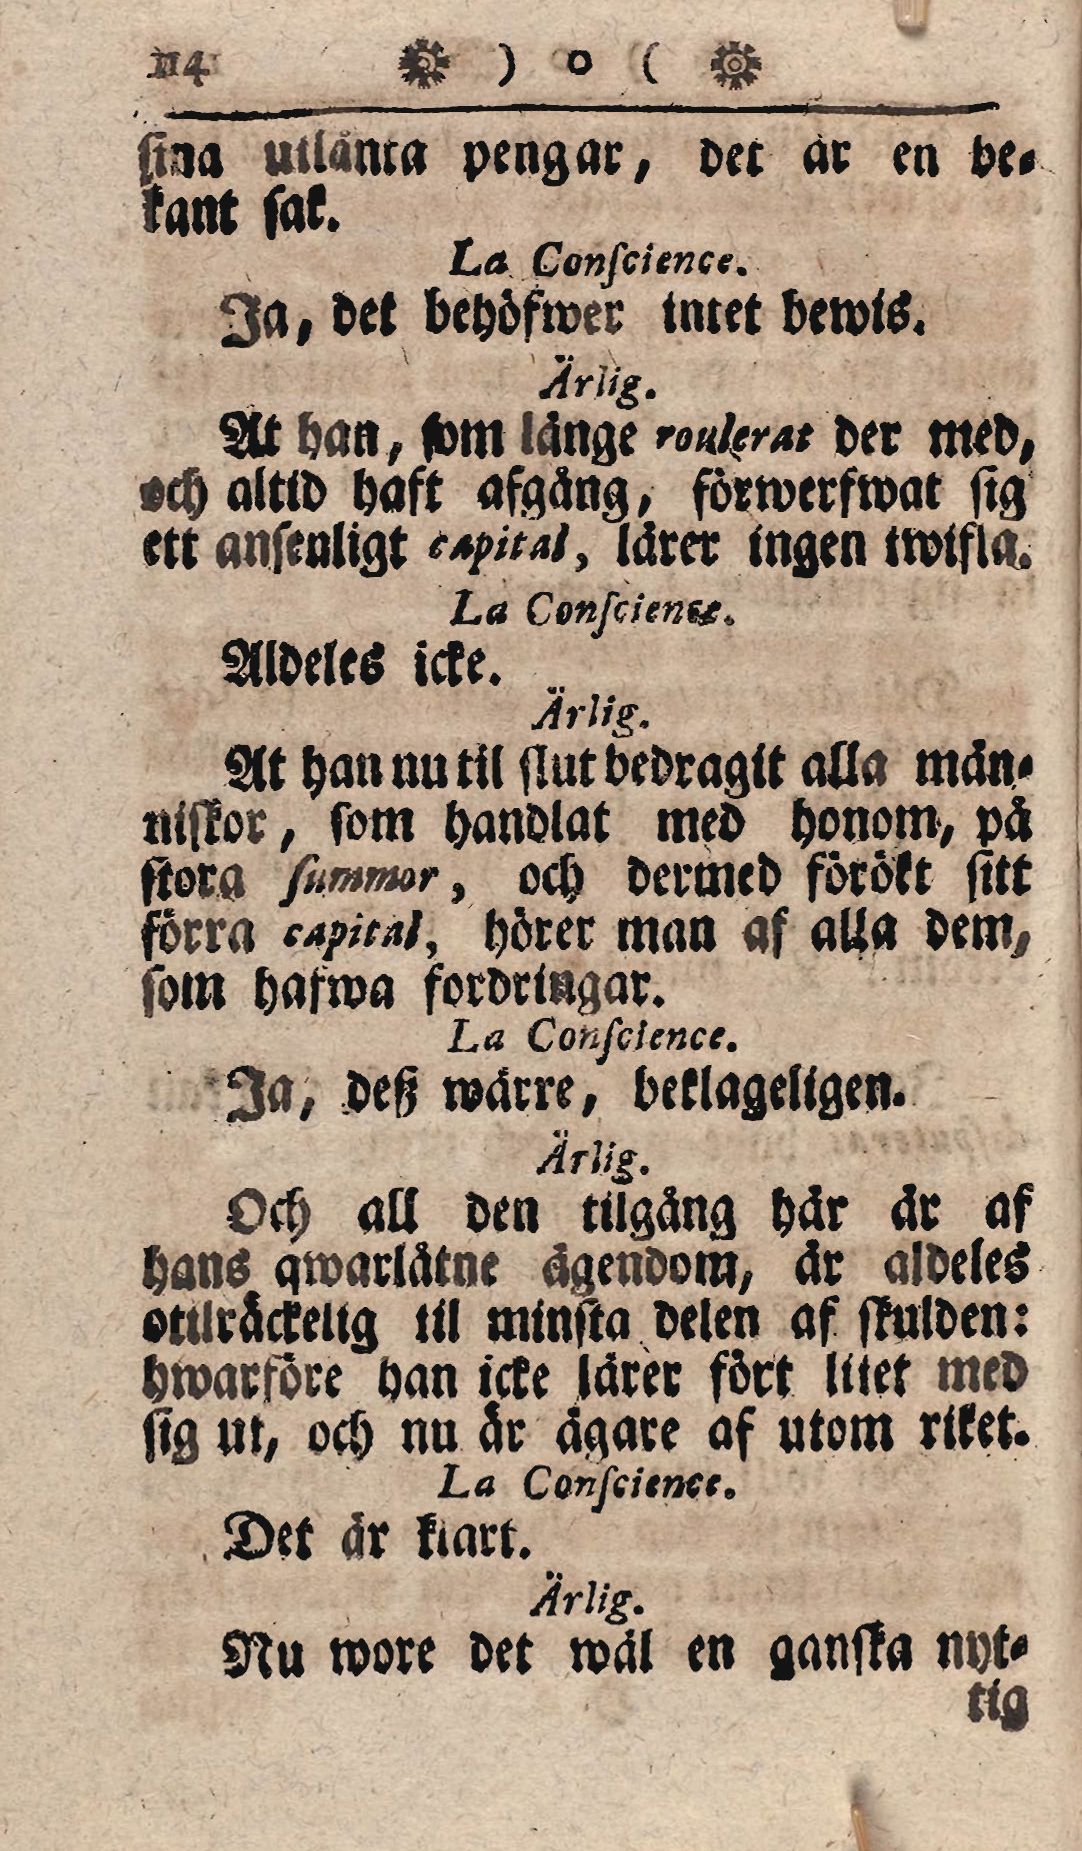 114 ) o (
sina utlånta pengar, det är en be-
kant sak.
La Conſcience.
Ja, det behöfwer intet bewis.
Ärlig.
At han, som länge roulerat der med,
och altid haft afgång, förwerfwat sig
ett ansenligt capital, lärer ingen twifla.
La Conſcience.
Aldeles icke.
Ärlig.
At han nu til slut bedragit alla män-
niskor, som handlat med honom, på
stora ſummor, och dermed förökt sitt
förra capital, hörer man af alla dem,
som hafwa fordringar.
La Conſcience.
Ja, deß wärre, beklageligen.
Ärlig.
Och all den tilgång här är af
hans qwarlåtne ägendom, är aldeles
otilräckelig til minsta delen af skulden:
hwarföre han icke lärer fört litet med
sig ut, och nu är ägare af utom riket.
La Conſcience.
Det är klart.
Ärlig.
Nu wore det wäl en ganska nyt-
tig